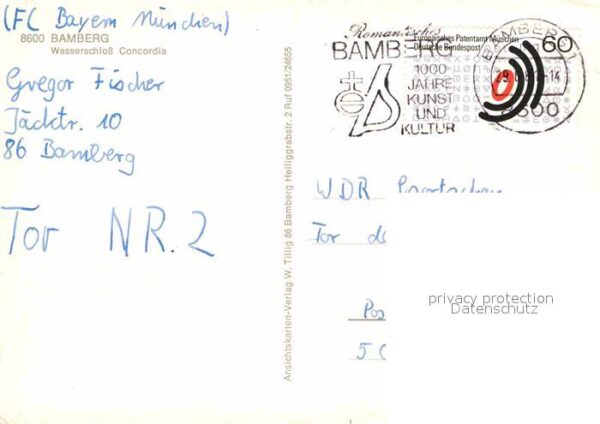 (FC Bayern München)
8600 BAMBERG
Wasserschloß Concordia
Gregor Fischer
10
86 Bamberg
Tor NR. 2
Ansichtskarten-Verlag W. Tillig 86 Bamberg Heiliggrabstr. 2 Ruf 0951/24655
Romantisches
BAMBERG
1000
JAHRE
KUNST
UND
KULTUR
Europäisches Patentamt München
Deutsche Bundespost
60
BAMBERG
WDR
Tor
privacy protection
Datenschutz